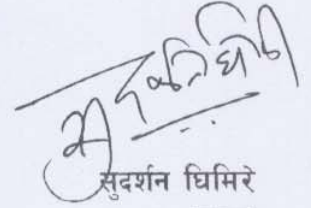 सुदर्शन घिमिरे